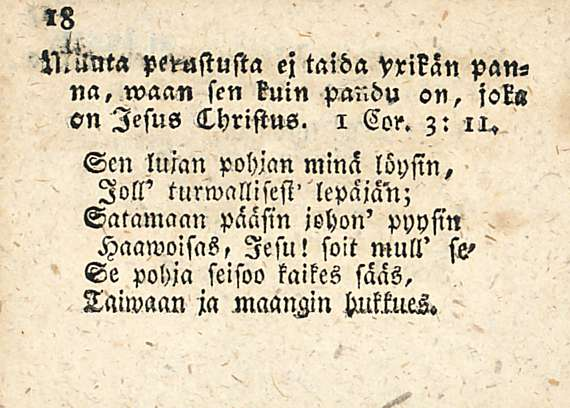 18
Muuta perustusta ej taida yxikän pan-
na, waan sen kuin pandu on, joka
on Jesus Christus. 1 Cor. 3: 11.
Sen lujan pohjan minä löysin,
Joll' turwallisest' lepäjän;
Satamaan pääsin johon' pyysin
Haawoisas, Jesu! soit mull' se-
Se pohja seisoo kaikes sääs,
Taiwaan ja maangin hukkues.